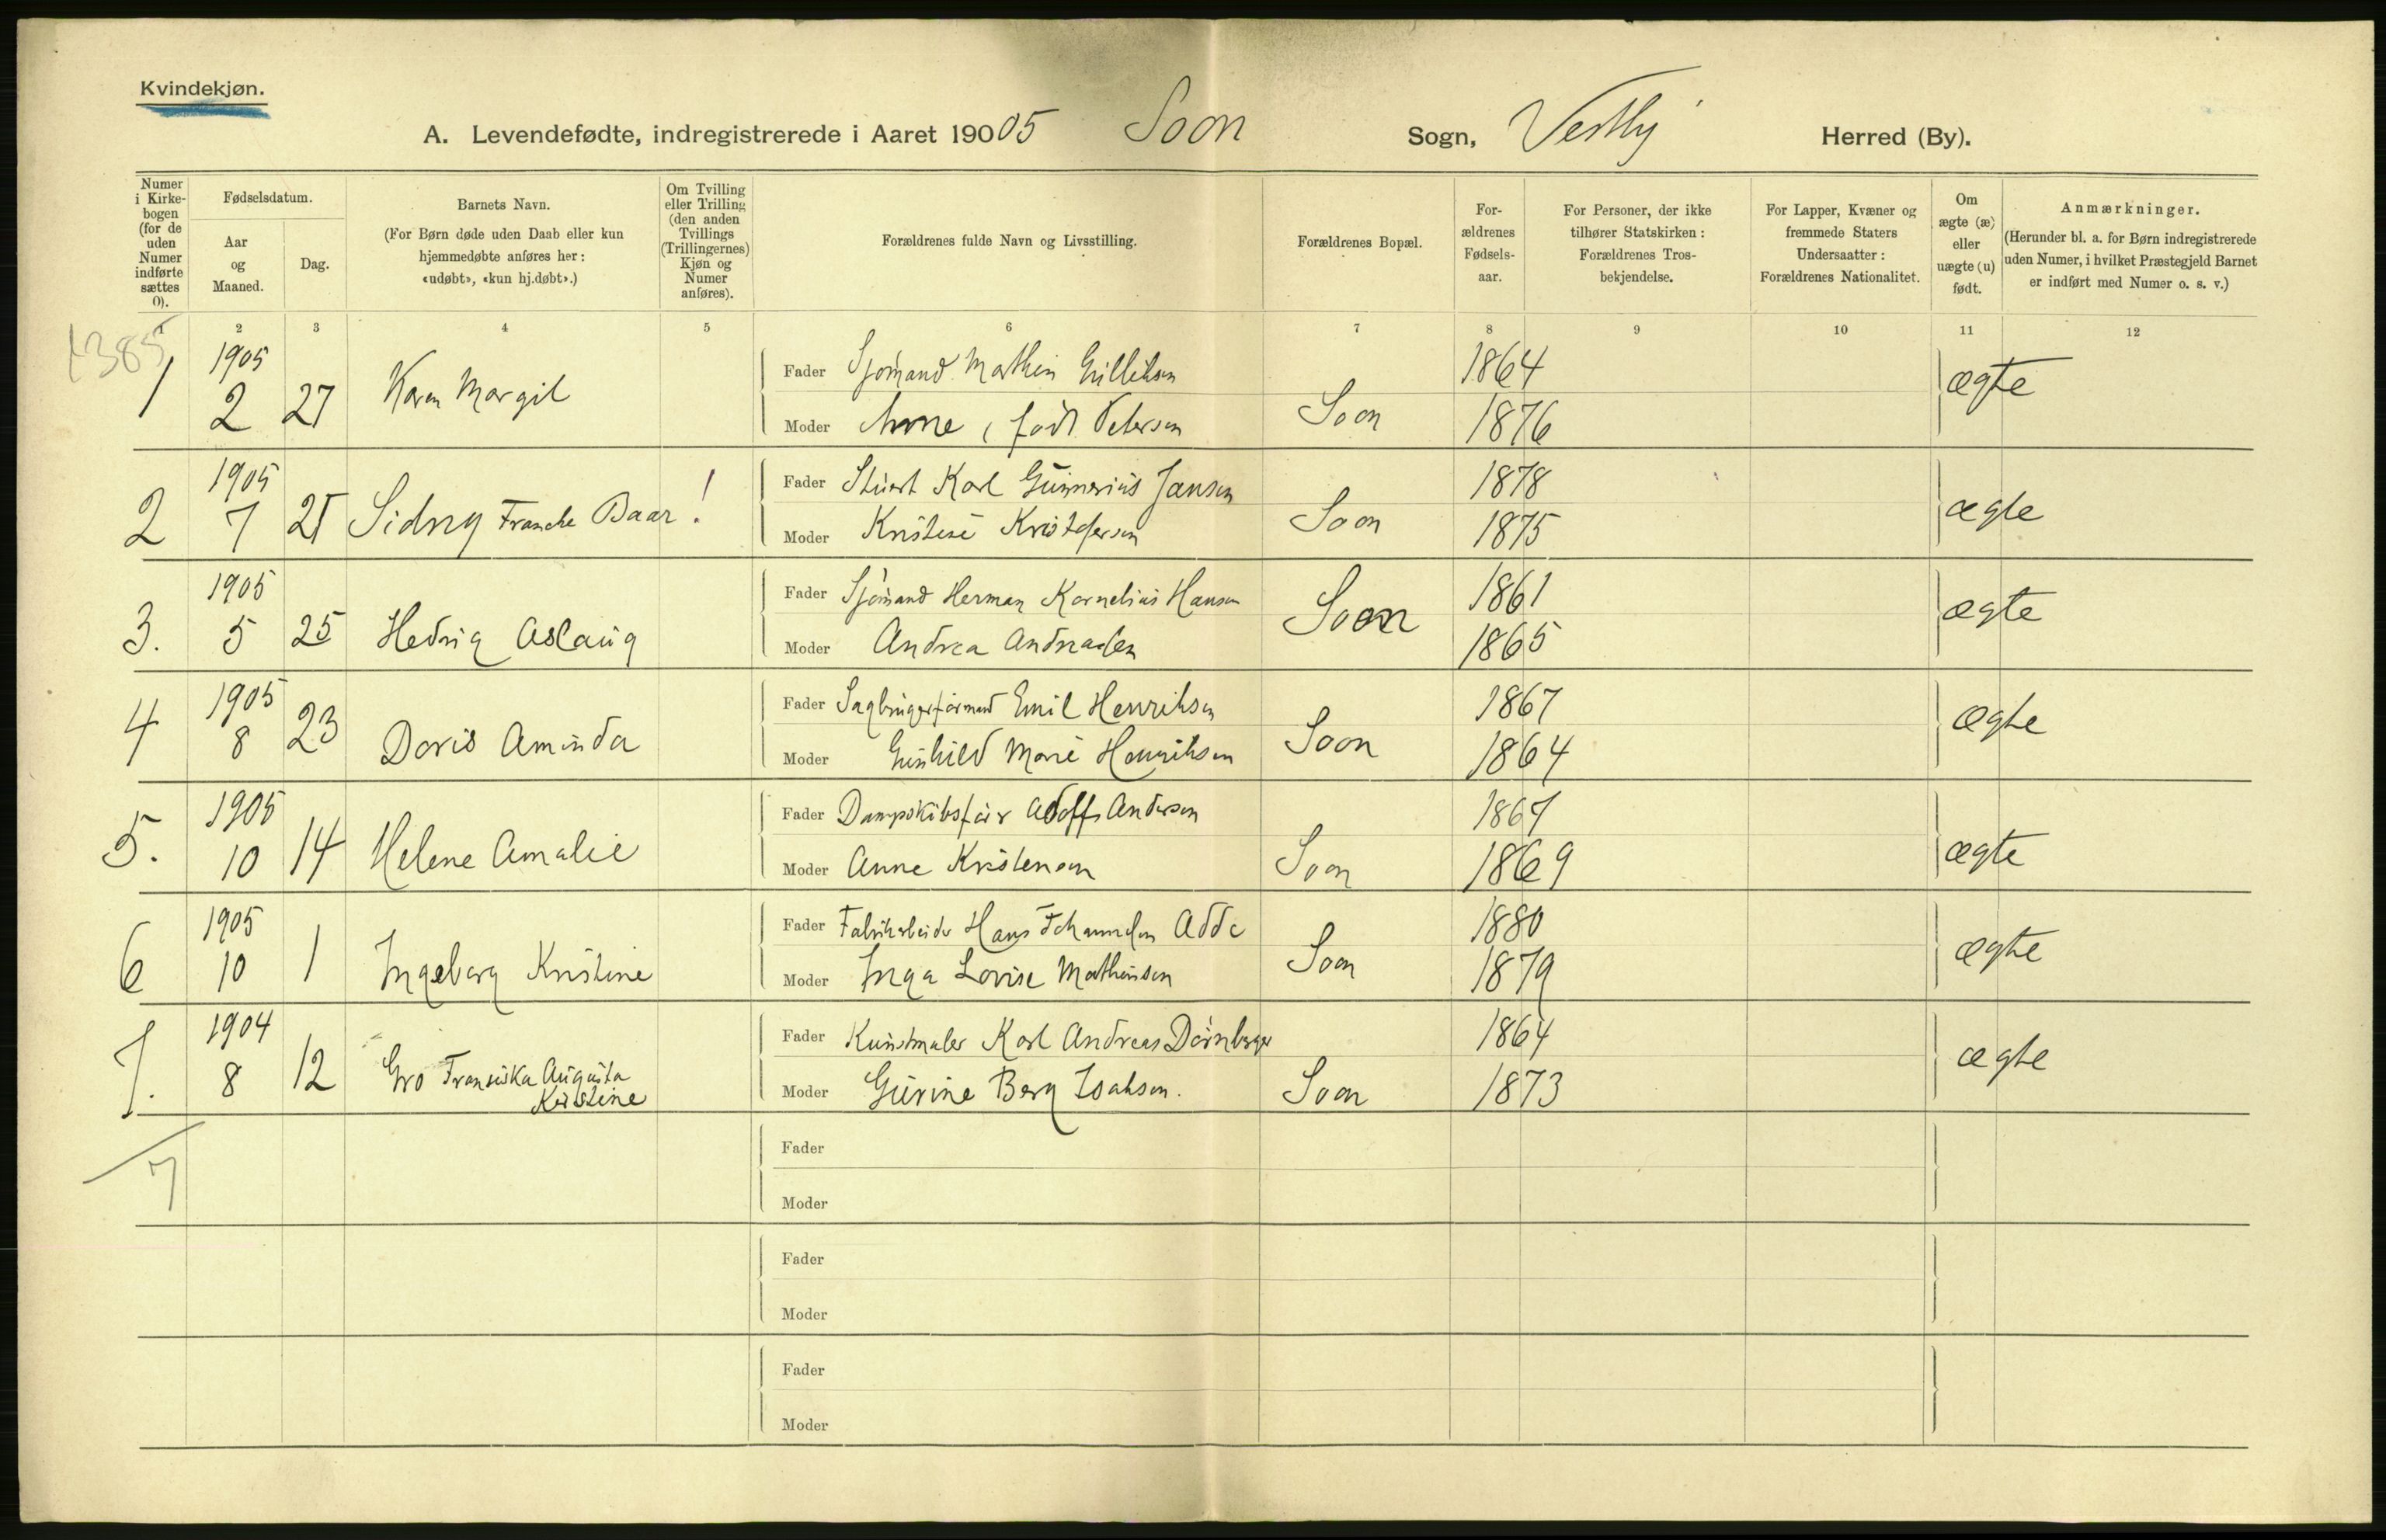 Kvindekjøn.
A. Levendefødte, indregistrerede i Aaret 19005 Soon Sogn, Vestby Herred (By).
Numer i Kirkebogen (for de uden Numer indførte sættes 0).
Fødselsdatum.
Aar og Maaned.
Dag.
Barnets Navn.
(For Børn døde uden Daab eller kun hjemmedøbte anføres her: «udøbt», «kun hj.døbt».)
Om Tvilling eller Trilling (den anden Tvillings (Trillingernes) Kjøn og Numer anføres).
Forældrenes fulde Navn og Livsstilling.
Forældrenes Bopæl.
For-ældrenes Fødsels-aar.
For Personer, der ikke tilhører Statskirken: Forældrenes Tros-bekjendelse.
For Lapper, Kvæner og fremmede Staters Undersaatter: Forældrenes Nationalitet.
Om ægte (æ) eller uægte (u) født.
Anmærkninger.
(Herunder bl. a. for Børn indregistrerede uden Numer, i hvilket Præstegjeld Barnet er indført med Numer o. s. v.)
1 2 3 4 5 6 7 8 9 10 11 12
1 1905 2 27 Karen Margit
Fader Sjømand Mathin 1864
Moder Anne, født Petersen Soon 1876 ægte
2 1905 7 Baar !
Fader Stuert Karl Gunnerius Jansen 1878
Moder Kristofersen Soon 1875 ægte
3. 1905 5 25 Hedvig Aslaug
Fader Sjømand Herman Kornelius Hansen 1861
Moder Andrea Andreasen Soon 1865 ægte
4 1905 8 23 Doris Aminda
Fader Emil Henriksen 1867
Moder Gunhild Marie Henriksen Soon 1864 ægte
5. 1905 10 14 Helene Amalie
Fader Adolf Andersen 1867
Moder Anne Kristensen Soon 1869 ægte
6 1905 10 1 Ingeborg Kristine
Fader Fabrikarbeider Hans 1880
Moder Inga Lovise Mathisen Soon 1879 ægte
7. 1904 8 12 Gro Fransiska Augusta Kristine
Fader Kunstmaler Karl Andreas Dörnberger 1864
Moder Gurine Berg Isaksen. Soon 1873 ægte
7
Fader
Moder
Fader
Moder
Fader
Moder